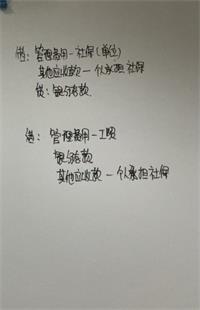 借：管理费用—社保(单位)
其他应收款—个人承担社保
贷：银行存款
借：管理费用—工资
银行存款
其他应收款—个人承担社保